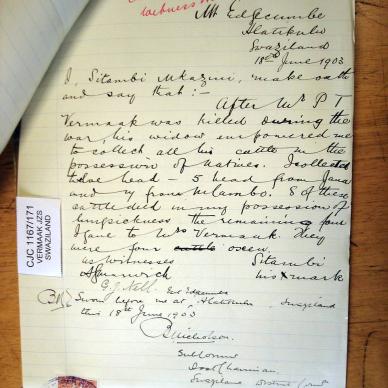 Witness
Mt Edgecumbe
Hlatikulu
Swaziland
18th June 1903
I, Sitambi Mkazini, make oath
and say that :-
After Mr P T
Vermaak was killed during the
war, his widow empowered me
to collect all his cattle in the
possession of natives. I collected
twelve head - 5 head from Jana
and 7 from Mlambo. 8 of these
cattle died in my possession of
lungsickness the remaining four
I gave to Mrs Vermaak. They
were four cattle oxen.
as witnesses Sitambi
his x mark
G. J. Nell.
Sworn before me at Hlatikulu Swaziland
this 18th June 1903
B Nicholson
Swaziland District
CJC 1167/171
VERMAAK JZS
SWAZILAND